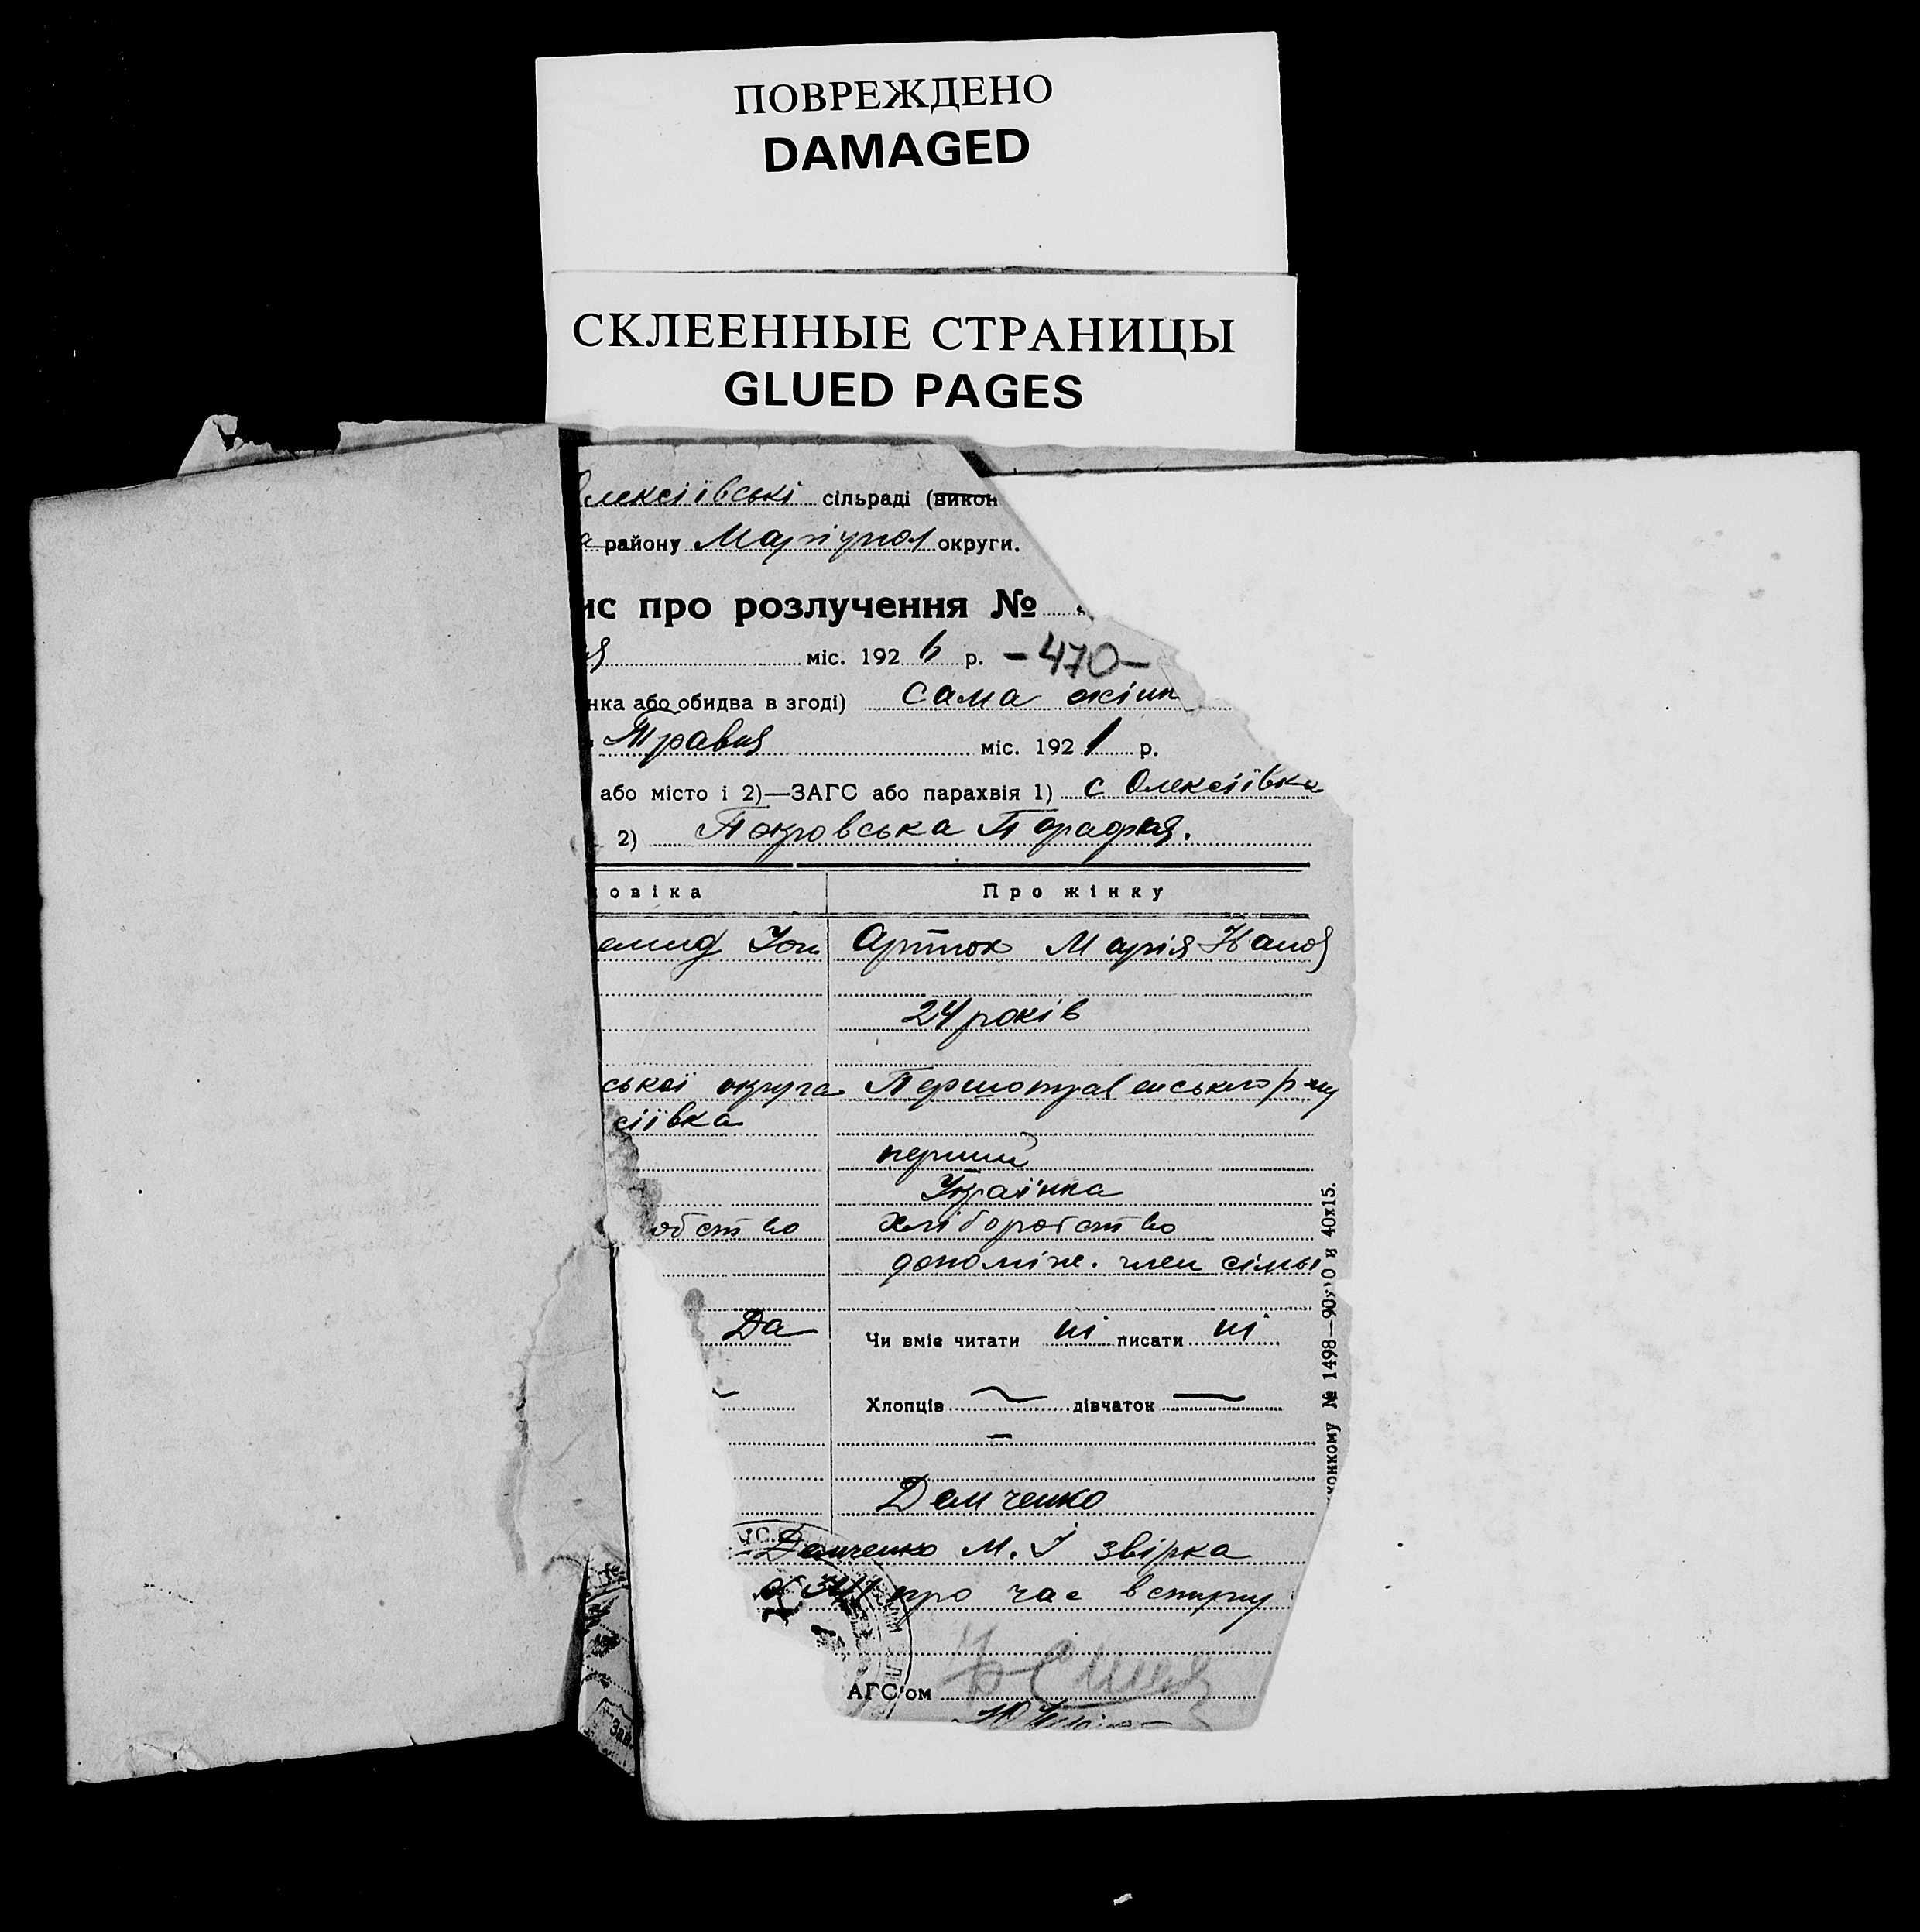 ПОВРЕЖДЕНО
DAMAGED
СКЛЕЕННЫЕ СТРАНИЦЫ
GLUED PAGES
Олексіївські сільраді (викон
району Маріупол округи.
ис про розлучення №
міс. 1926 р. -470-
нка або обидва в згоді) Сама жінк
Травня міс. 1921 р.
або місто і 2)—ЗАГС або парахвія 1) с Олексіївка
2) Покровська Парафия.
овіка Про жінку
Марія Іванов
24 років
ської округа
сіївка
перший
Українка
обство хліборобство
допоміж. член сімьі
Да Чи вміє читати ні писати ні
Хлопців — дівчаток —
—
Демченко
Демченко М. І звірка
про час вступу
АГС'ом
№ 1498—90 и 40х15.